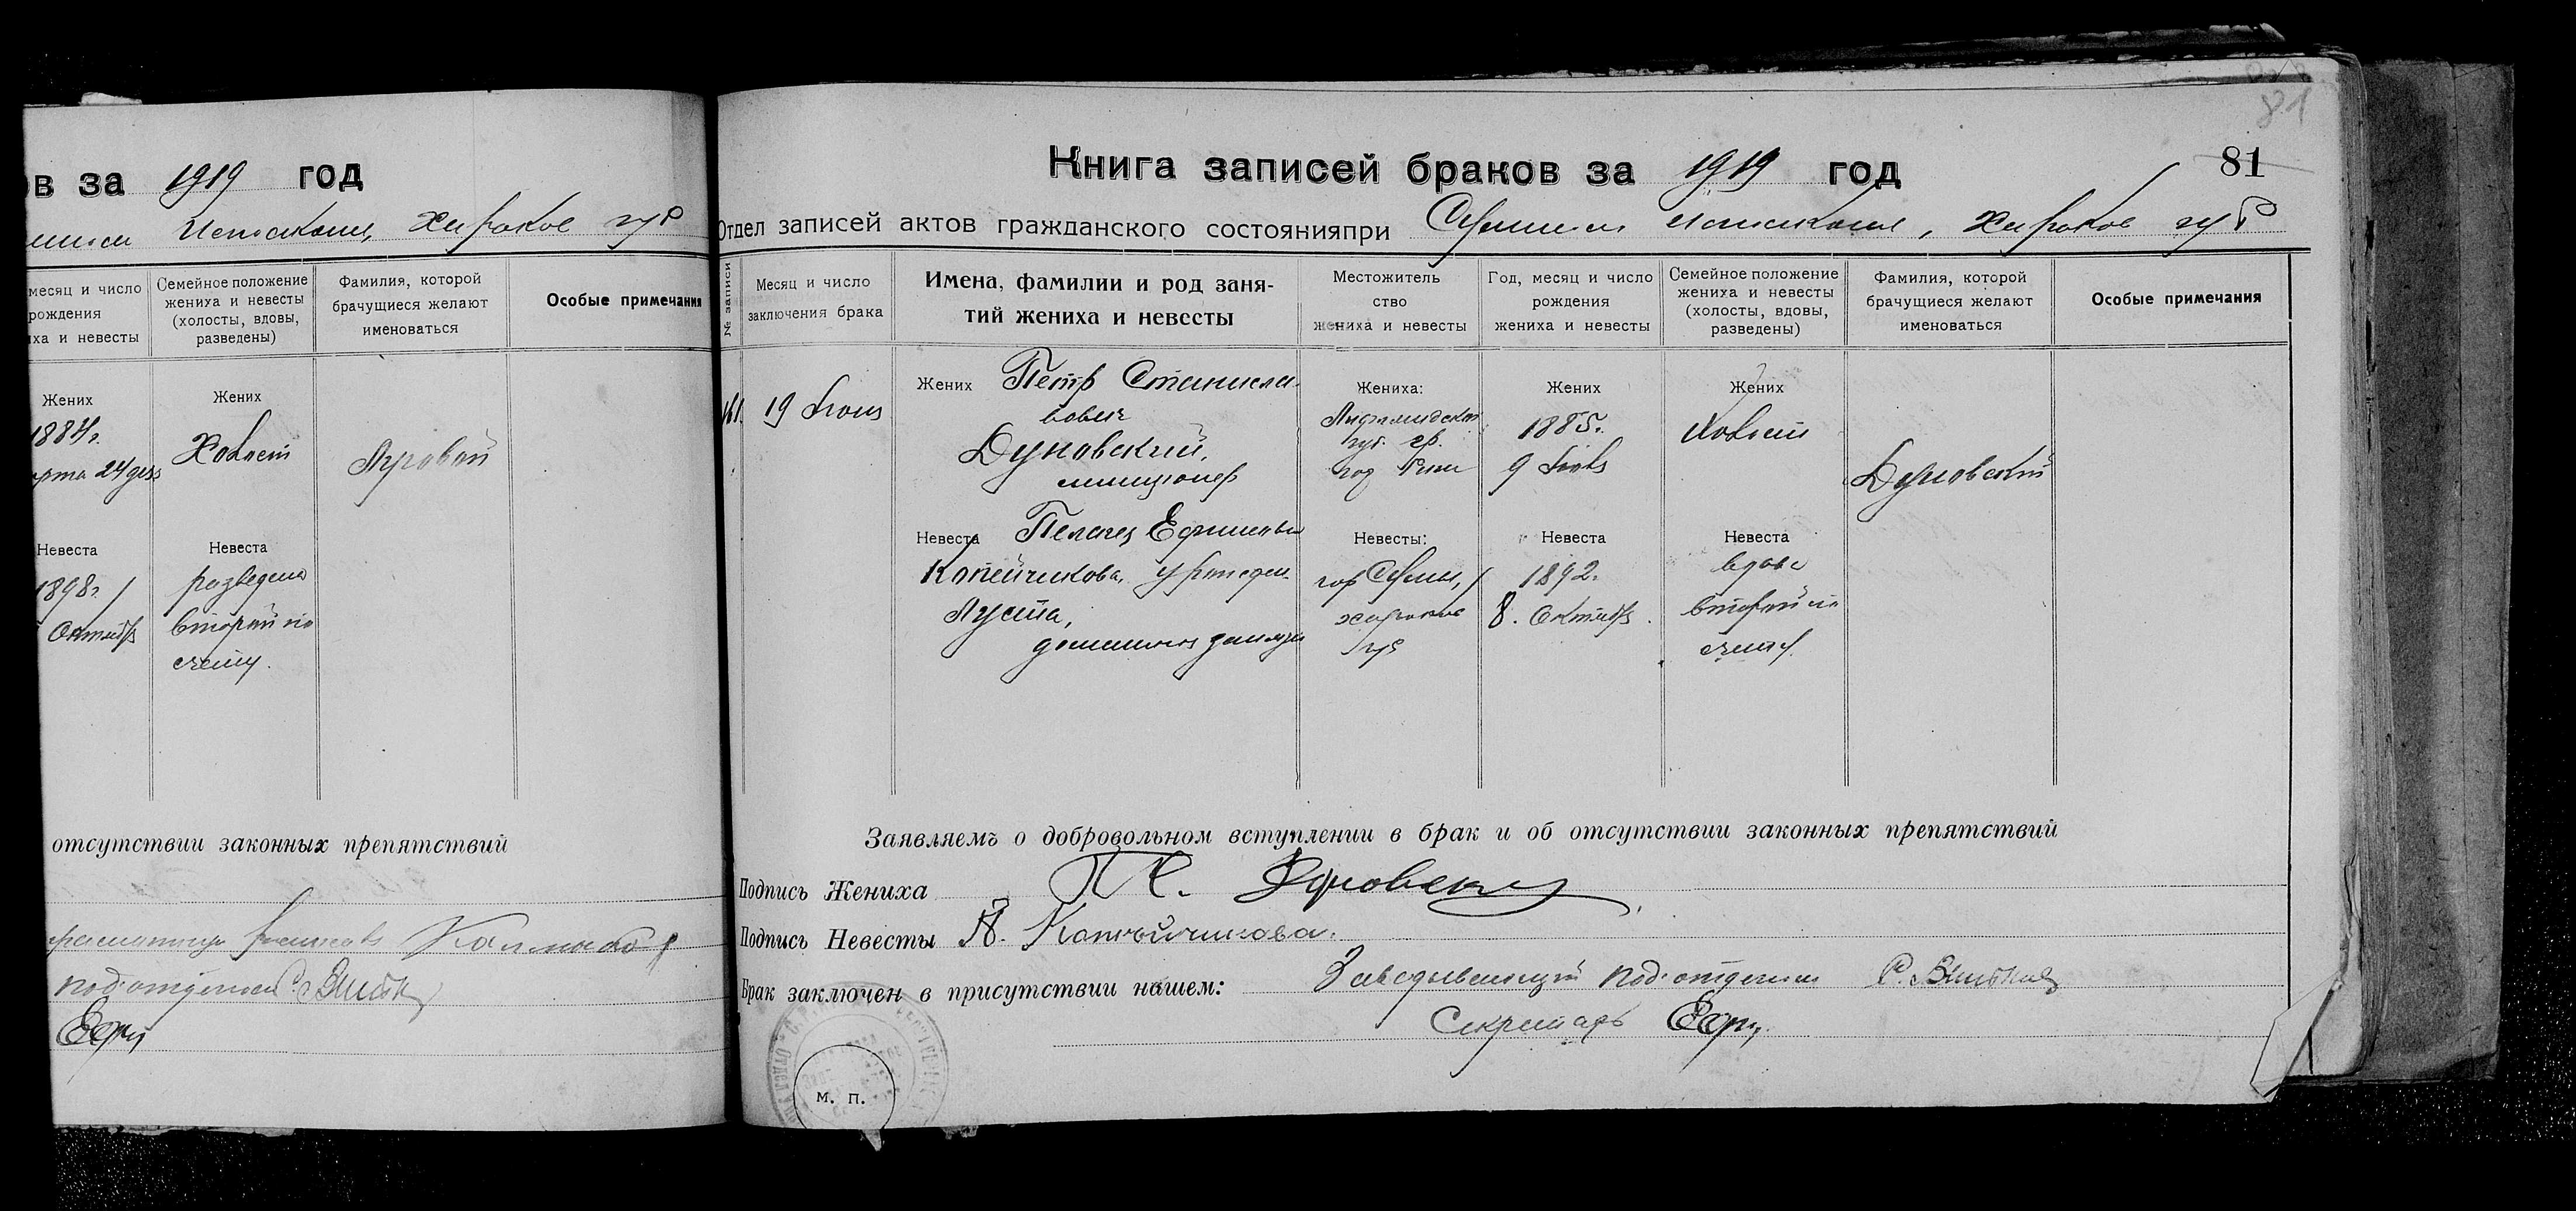 ов за 1919 год
Исполкоме, Харьков губ
месяц и число
рождения
жениха и невесты
Семейное положение
жениха и невесты
(холосты, вдовы,
разведены)
Фамилия, которой
брачущиеся желают
именоваться
Особые примечания
Жених
1884г.
марта 24 дня
Жених
Холост
Невеста
1898г.
Октября
Невеста
разведена
вторым по
счету.
отсутствии законных препятствий
подотделом
81
Книга записей браков за 1919 год
81
Отдел записей актов гражданского состоянияпри Сумском Исполкоме, Харьков губ
№ записи
Месяц и число
заключения брака
Имена, фамилии и род заня-
тий жениха и невесты
Местожитель
ство
жениха и невесты
Год, месяц и число
рождения
жениха и невесты
Семейное положение
жениха и невесты
(холосты, вдовы,
разведены)
Фамилия, которой
брачущиеся желают
именоваться
Особые примечания
161.
19
Жених Петр Станисла-
вович
Дуновский,
милиционер
Жениха:
Лифляндской
губ. гр.
гор Риги
Жених
1885г.
9
Жених
Холост
Дуновский
Невеста Пелагея Ефимовна
Копейчикова, урожден.
Пуста,
домашних занятий
Невесты:
гор Сумы,
харьков
губ
Невеста
1892г.
8. Октября.
Невеста
вдова
вторым по
счету.
Заявляемъ о добровольном вступлении в брак и об отсутствии законных препятствий
Подпись Жениха П С. Дуновский
Подпись Невесты П. Копейчикова.
Брак заключен в присутствии нашем: Заведывающий подотделом
Секретарь
м. п.